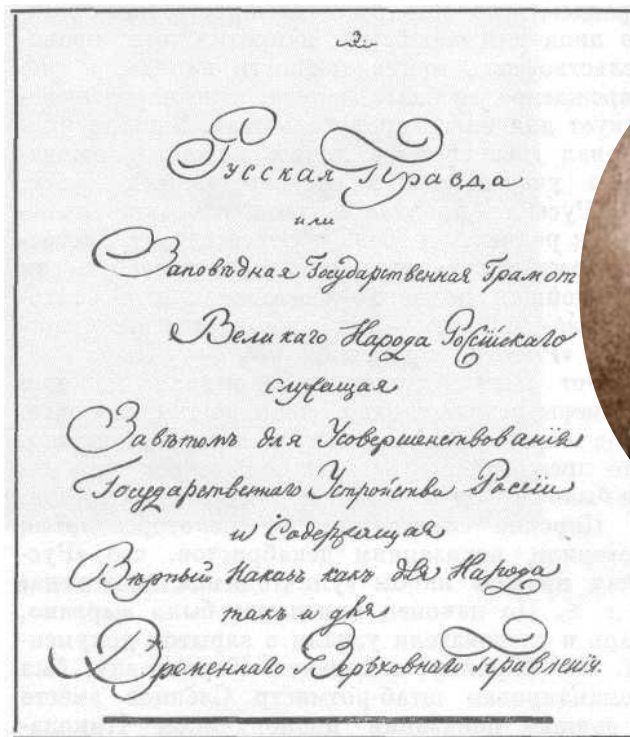 2
Русская Правда
или
Заповѣдная Государственная Грамот
Великаго Народа Россійскаго
служащая
Завѣтомъ для Усовершенствованія
Государственнаго Устройства Россіи
и Содержащая
Вѣрный Наказъ какъ для Народа
такъ и для
Временнаго Верьховнаго Правленія.